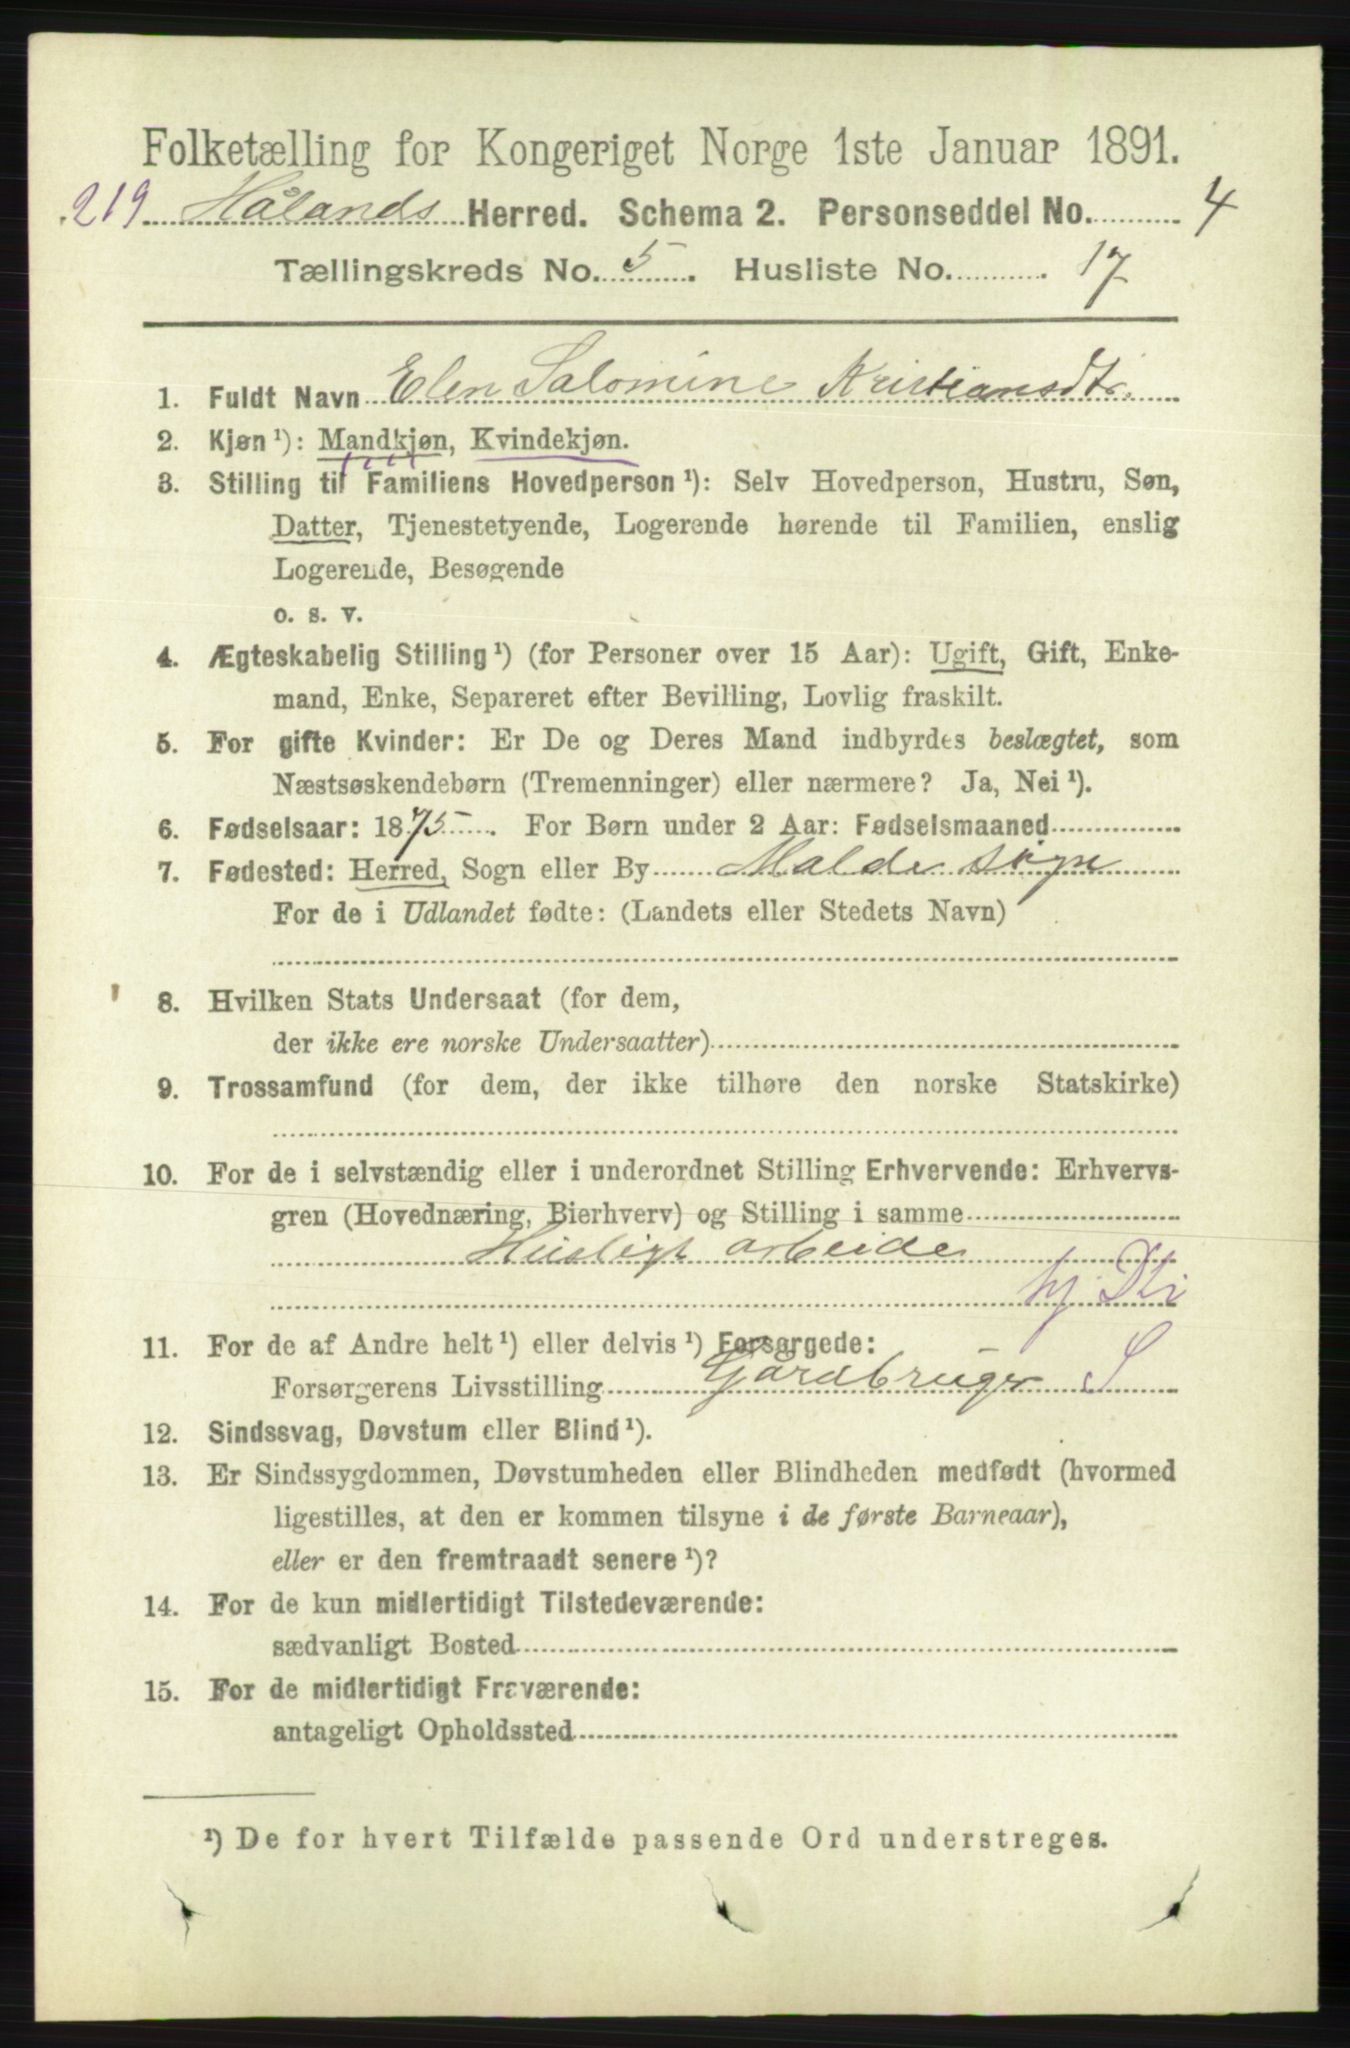 Folketælling for Kongeriget Norge 1ste Januar 1891.
219 Hålands Herred. Schema 2. Personseddel No. 4
Tællingskreds No. 5. Husliste No. 17
1. Fuldt Navn Elen Salomine Kristiansdtr.
2. Kjøn ¹): Mandkjøn, Kvindekjøn.
3. Stilling til Familiens Hovedperson ¹): Selv Hovedperson, Hustru, Søn,
Datter, Tjenestetyende, Logerende hørende til Familien, enslig
Logerende, Besøgende
o. s. v.
4. Ægteskabelig Stilling ¹) (for Personer over 15 Aar): Ugift, Gift, Enke-
mand, Enke, Separeret efter Bevilling, Lovlig fraskilt.
5. For gifte Kvinder: Er De og Deres Mand indbyrdes beslægtet, som
Næstsøskendebørn (Tremenninger) eller nærmere? Ja, Nei ¹).
6. Fødselsaar: 1875. For Børn under 2 Aar: Fødselsmaaned
7. Fødested: Herred, Sogn eller By Malde sogn
For de i Udlandet fødte: (Landets eller Stedets Navn)
8. Hvilken Stats Undersaat (for dem,
der ikke ere norske Undersaatter)
9. Trossamfund (for dem, der ikke tilhøre den norske Statskirke)
10. For de i selvstændig eller i underordnet Stilling Erhvervende: Erhvervs-
gren (Hovednæring, Bierhverv) og Stilling i samme
Husligt arbeide
11. For de af Andre helt ¹) eller delvis ¹) Forsørgede:
Forsørgerens Livsstilling Gårdbruger S
12. Sindssvag, Døvstum eller Blind ¹).
13. Er Sindssygdommen, Døvstumheden eller Blindheden medfødt (hvormed
ligestilles, at den er kommen tilsyne i de første Barneaar),
eller er den fremtraadt senere ¹)?
14. For de kun midlertidigt Tilstedeværende:
sædvanligt Bosted
15. For de midlertidigt Fraværende:
antageligt Opholdssted
¹) De for hvert Tilfælde passende Ord understreges.